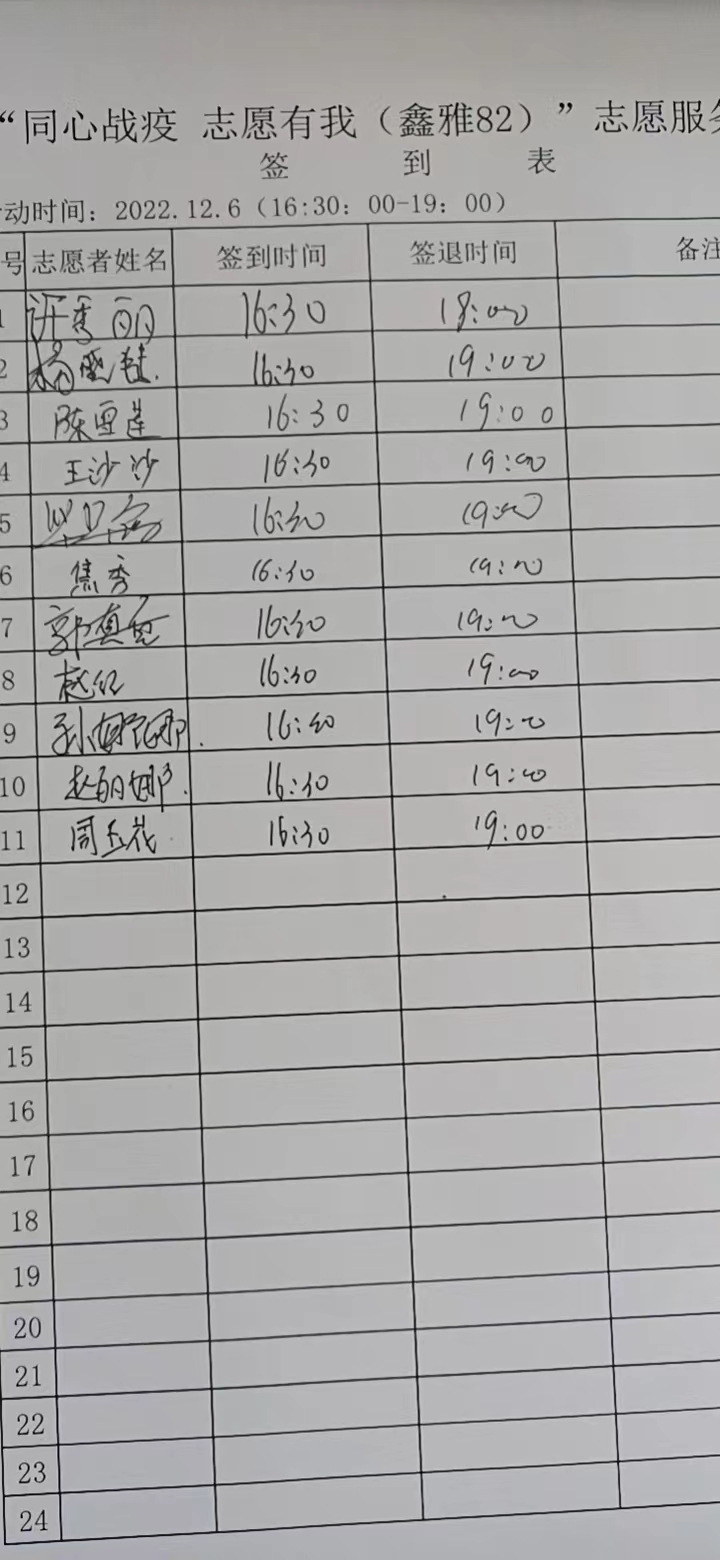 “同心战疫 志愿有我（鑫雅82）”志愿服务
签 到 表
动时间：2022.12.6（16:30：00-19：00）
号 志愿者姓名 签到时间 签退时间 备注
1 许秀丽 16:30 18:00
2 杨 16:30 19:00
3 陈雪莲 16:30 19:00
4 王沙沙 16:30 19:00
5 16:30 19:00
6 焦秀 16:30 19:00
7 郭真 16:30 19:00
8 赵红 16:30 19:00
9 孙娜娜. 16:30 19:00
10 赵丽娜. 16:30 19:00
11 周玉花 16:30 19:00
12
13
14
15
16
17
18
19
20
21
22
23
24